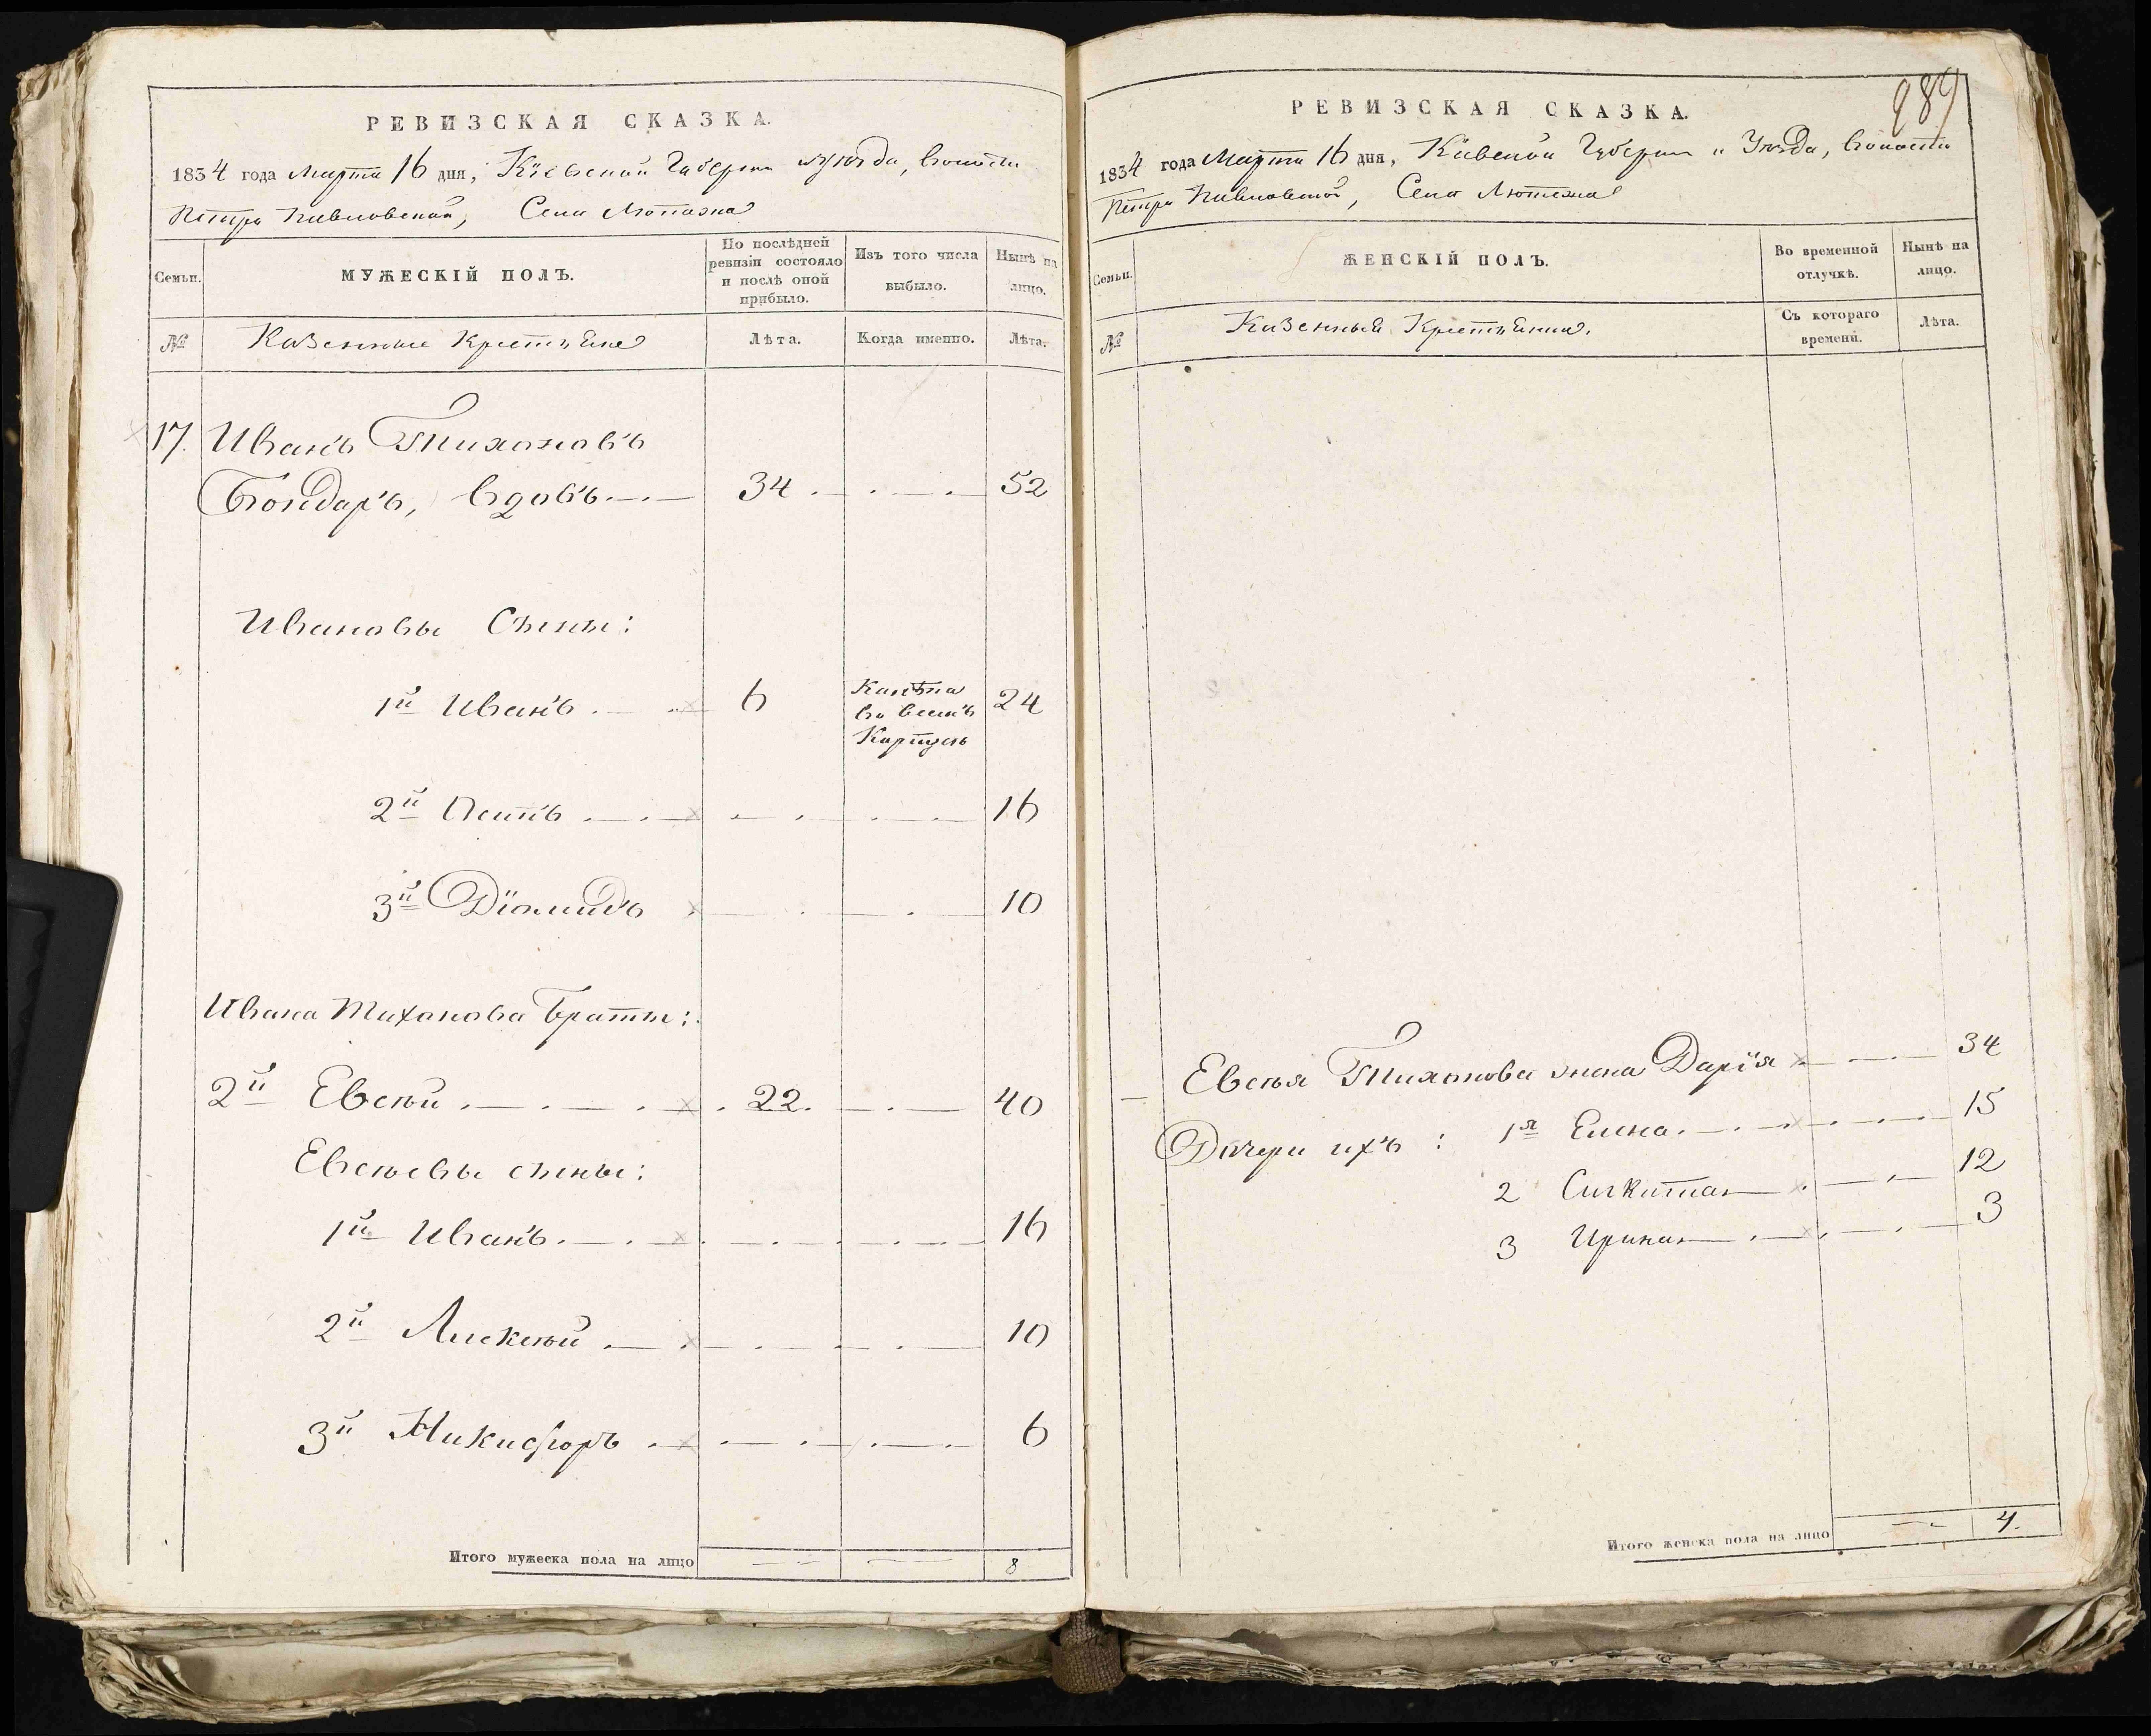 РЕВИЗСКАЯ СКАЗКА.
1834 года Марта 16 дня, Кіевской Губерніи и Уѣзда, Волости
Петро Павловской, Села Лютежа
Семьи.
МУЖЕСКІЙ ПОЛЪ.
По послѣдней ревизіи состояло и послѣ оной прибыло.
Изъ того числа выбыло.
Нынѣ на лицо.
№
Казенные Крестьяне
Лѣта.
Когда именно.
Лѣта.
17. Иванъ Тихоновъ
Бондаръ, вдовъ 34 52
Ивановы Сыны:
1й Иванъ 6 24
Калѣка
во весь
2й 16
3й Діомидъ 10
Ивана Тихонова Братъ:
2й Евсѣй 22. 40
Евсѣевы сыны:
1й Иванъ 16
2й Алексѣй 10
3й Никифоръ 6
Итого мужеска пола на лицо 8
289
РЕВИЗСКАЯ СКАЗКА.
1834 года Марта 16 дня, Кіевской Губерніи и Уѣзда, Волости
Петро Павловской, Села Лютежа
Семьи.
ЖЕНСКІЙ ПОЛЪ.
Во временной отлучкѣ.
Нынѣ на лицо.
№
Казенныя Крестьянки.
Съ котораго времени.
Лѣта.
Евсѣя Тихонова жена Дарія 34
Дочери ихъ: 1я Елена 15
2 12
3 Ирина 3
Итого женска пола на лицо 4.